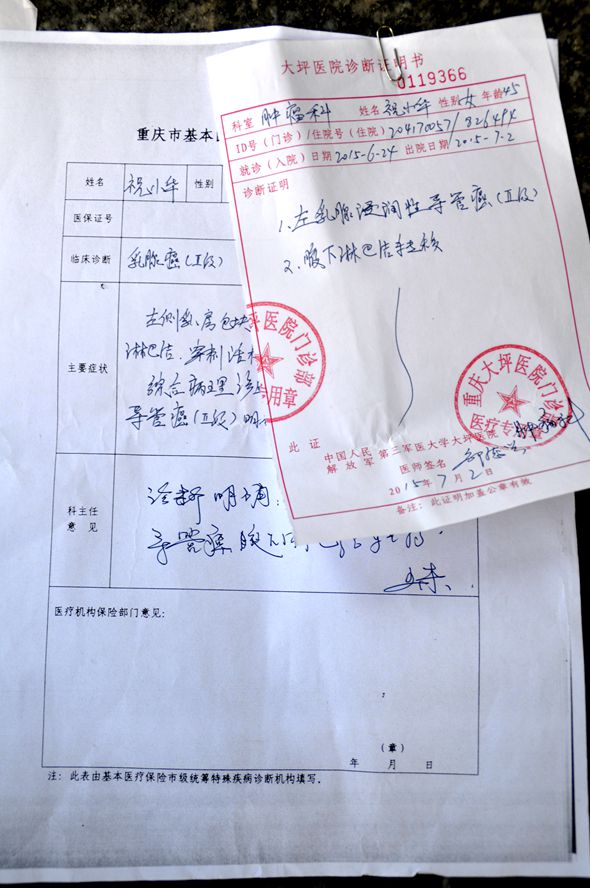 大坪医院诊断证明书
0119366
科室 肿瘤科 姓名 祝小华 性别 女 年龄 45
ID号(门诊)/住院号(住院) 204170057/826494
就诊(入院)日期 2015-6-24 出院日期 2015-7-2
诊断证明
1、左乳腺浸润性导管癌(Ⅱ级)
2、腋下淋巴结转移
此证
中国人民
解放军
第三军医大学大坪医院
医师签名
2015年7月2日
备注:此证明加盖公章有效
坪医院门诊部
用章
重庆大坪医院门诊部
医疗专
肿瘤科
重庆市基本
姓名 祝小华 性别
医保证号
临床诊断 乳腺癌(Ⅱ级)
主要症状
左侧乳房包块
淋巴结、穿刺活检
综合病理诊
导管癌(Ⅱ级)明
科主任
意见
诊断明确
导管癌
医疗机构保险部门意见:
(章)
年 月 日
注:此表由基本医疗保险市级统筹特殊疾病诊断机构填写。